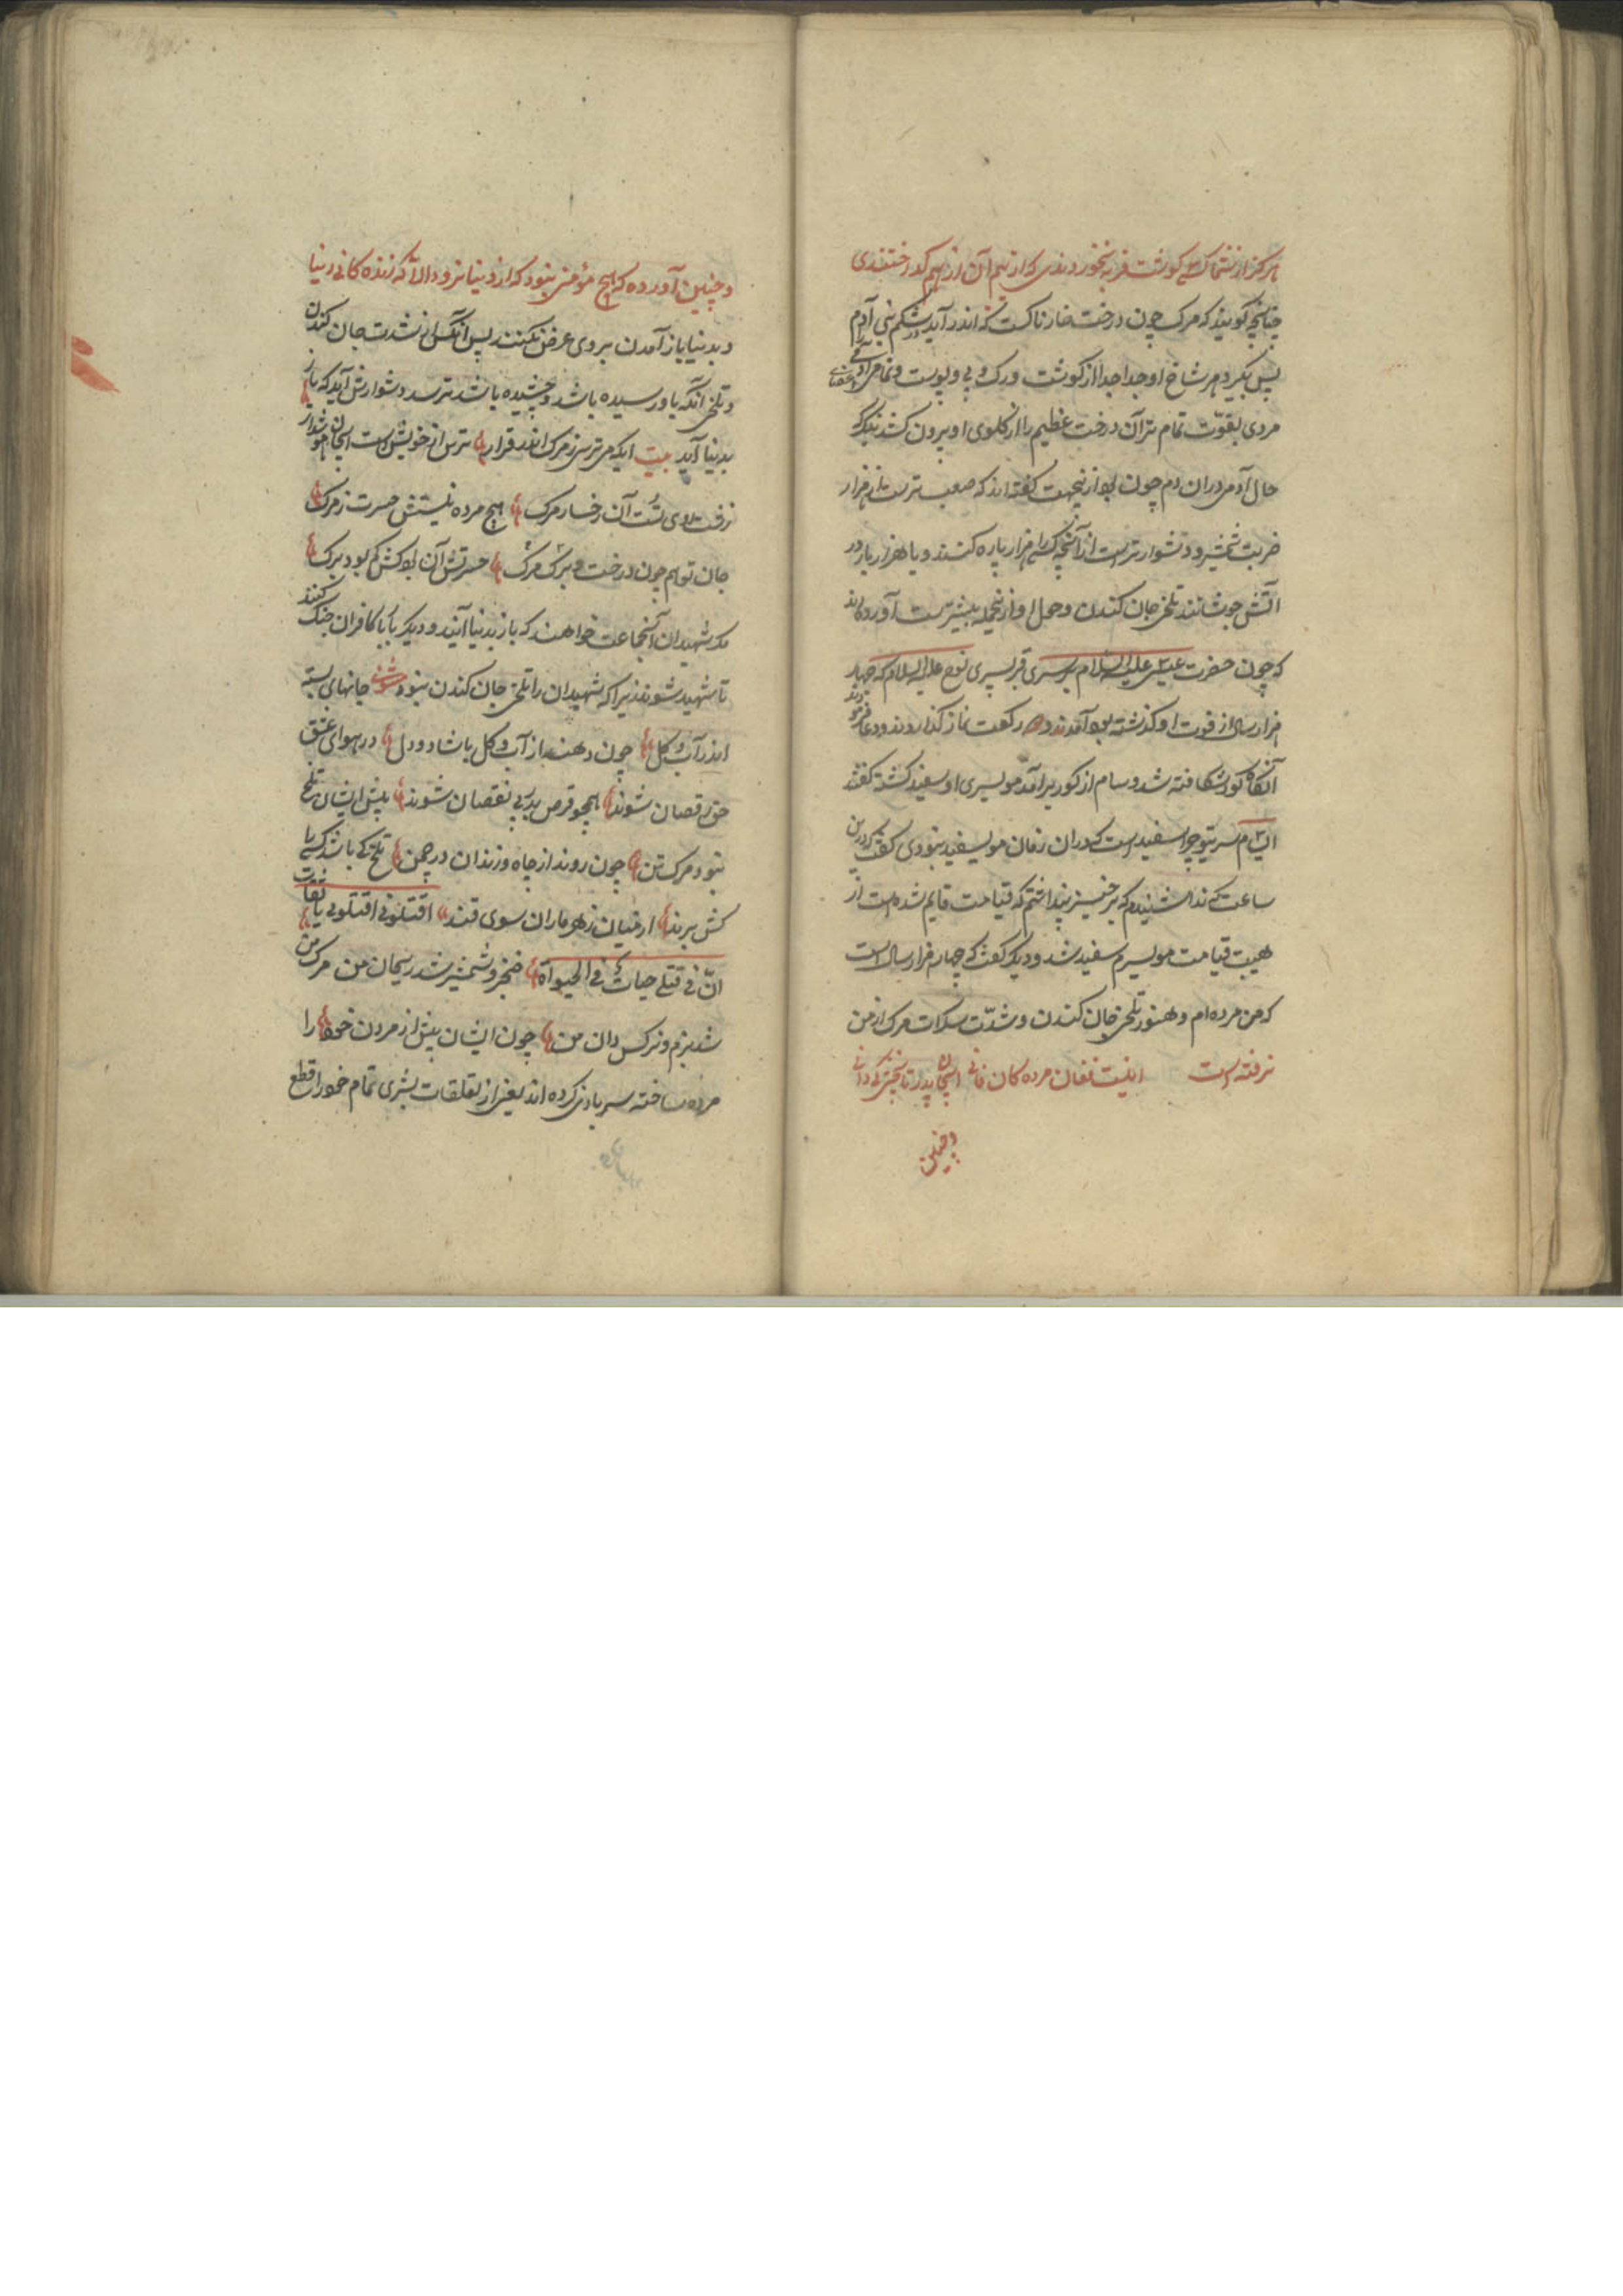 هرکز از شما کسی کوشت فربه نخوردندی که از بیم آن از هم کداختندی
چنانچه کویند که مرک چون درخت خارناکست که اندر آید در شکم بنی آدم
پس بکیرد هر شاخ او جدا جدا از کوشت و رک و پی و پوست و تمامی اعضای آدمی
مردی بقوّت تمام مر آن درخت عظیم را از کلوی او بیرون کشد بنکر که
حال آدمی دران دم چون بود ازینجهت کفته اند که صعب ترست از هزار
ضربت شمشیر و دشوارترست از آنچه کسی را هزار پاره کنند و یا هزار بار در
آتش جوشانند تلخی جان کندن و حول او ازینجمله بیشترست آورده اند
که چون حضرت عیسی علیه السلام بر سری قبر پسری نوح علیه السلام که چهار
هزار سال از فوت او کذشته بود آمدند و دو رکعت نماز کذاردند و دعا فرمودند
آنکاه کور شکافته شد و سام از کور برآمد مویسری او سفید کشته کفتند
ای سام سر تو چرا سفید است که دران زمان موی سفید نبودی کفت که درین
ساعت که ندا شنیدم که برخیز پنداشتم که قیامت قایم شده است از
هیبت قیامت مویسرم سفید شد و دیکر کفت که چهار هزار سال است
که من مرده ام و هنوز تلخی جان کندن و شدّت سکرات مرک از من
نرفته است اینست فغان مرده کان فانی ای جان پدر تا بخبر که دانی
وچنین
وچنین آورده که هیچ مؤمنی نبود که از دنیا برود الا آنکه زنده کانی دنیا
و بدنیا باز آمدن بروی عرض نکنند پس آنکس از شدت جان کندن
و تلخی آنکه باو رسیده باشد و چشیده باشد ترسد و دشوارش آید که باز
بدنیا آید بیت ایکه می ترسی ز مرک اندر فرار ترس از خویش است ای جان هوشدار
زفت روی تست آن رخسار مرک هیچ مرده نیستش حسرت ز مرک
جان تو هم چون درخت و برک مرک حسرتش آن بود کش کم بود برک
مکر شهیدان آنجماعت خواهند که باز بدنیا آیند و دیکر با کافران جنک کنند
تا شهید شوند زیرا که شهیدان را تلخی جان کندن نبود مثنوی جانهای بسته
اندر آب و کل چون دهند از آب و کل باشاد و دل در هوای عشق
حق رقصان شوند همچو قرص بدر بی نقصان شوند پیش ایشان تلخ
نبود مرک تن چون روند از چاه و زندان در چمن تلخ کی باشد کسی را
کش برند از میان زهر ماران سوی قند اقتلونی اقتلونی یا ثقات
انّ فی قتلی حیات فی الحیوة خنجر و شمشیر شد ریحان من مرک من
شد بزم و نرکس دان من چون ایشان پیش از مردن خود را
مرده ساخته سر بازی کرده اند یعنی از تعلقات بشری تمام خود را قطع